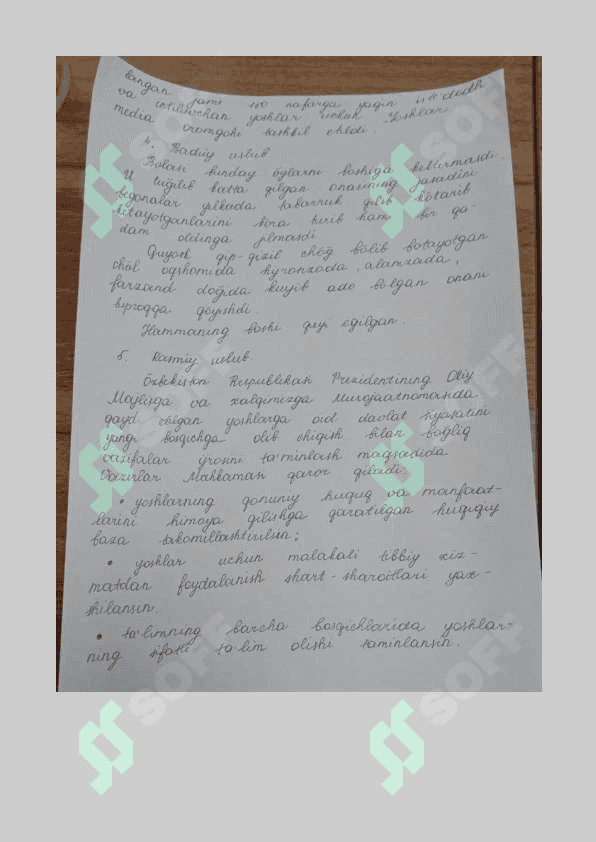 langan jami 100 nafarga yaqin iste'dodli
va intiluvchan yoshlar uchun Yoshlar
media oromgohi tashkil etildi.
4. Badiiy uslub
Bolasi bunday o'ylarni boshiga keltirmasdi.
U tug'ilib katta qilgan onasining jasadini
begonalar yelkada tabarruk qilib ko'tarib
ketayotganlarini ko'ra turib ham bir qa-
dam oldinga jilmasdi
Quyosh qip-qizil cho'g' bo'lib botayotgan
cho'l oqshomida hijronzada, alamzada,
farzand dog'ida kuyib ado bo'lgan onani
tuproqqa qo'yishdi.
Hammaning boshi quyi egilgan.
5. Rasmiy uslub
O'zbekiston Respublikasi Prezidentining Oliy
Majlisga va xalqimizga Murojaatnomasida
qayd etilgan yoshlarga oid davlat siyosatini
yangi bosqichga olib chiqish bilan bog'liq
vazifalar ijrosini ta'minlash maqsadida
Vazirlar Mahkamasi qaror qiladi:
• yoshlarning qonuniy huquq va manfaat-
larini himoya qilishga qaratilgan huquqiy
baza takomillashtirilsin;
• yoshlar uchun malakali tibbiy xiz-
matdan foydalanish shart-sharoitlari yax-
shilansin.
• ta'limning barcha bosqichlarida yoshlar-
ning sifatli ta'lim olishi taminlansin.
SOFF
SOFF
SOFF
SOFF
SOFF
SOFF